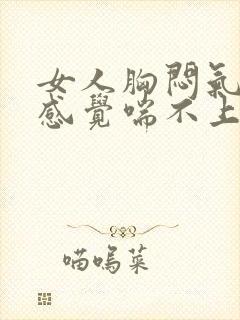 女人胸悶氣
感覺喘不上
喵嗚菜